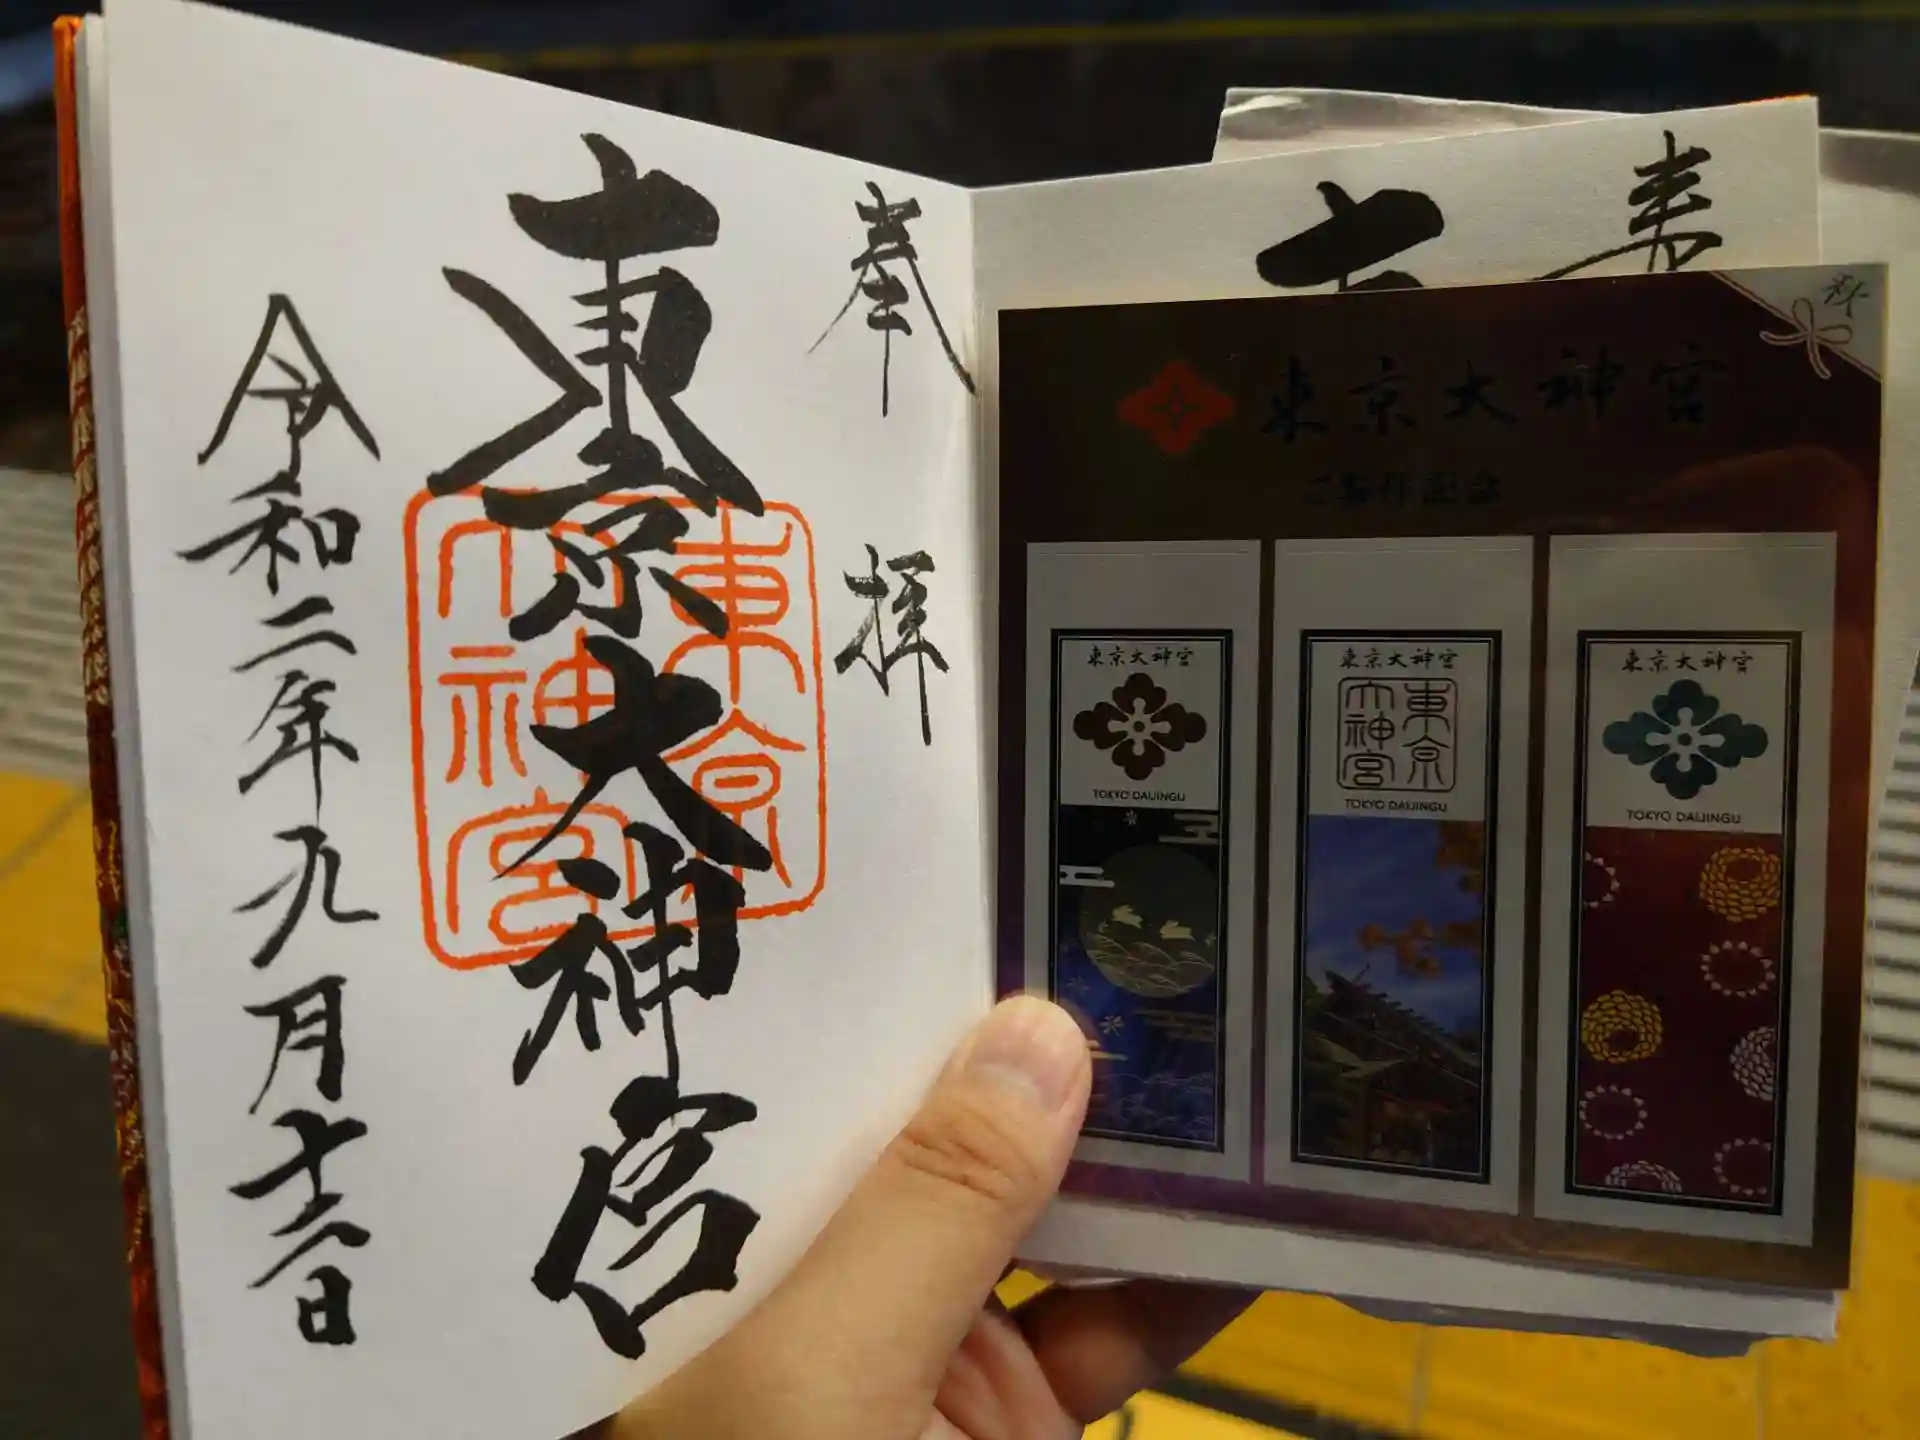 奉拝
東京大神宮
東京大神宮
令和二年九月十二日
奉
東京大神宮
東京大神宮
TOKYO DAIJINGU
東京大神宮
東京大神宮
TOKYO DAIJINGU
東京大神宮
TOKYO DAIJINGU